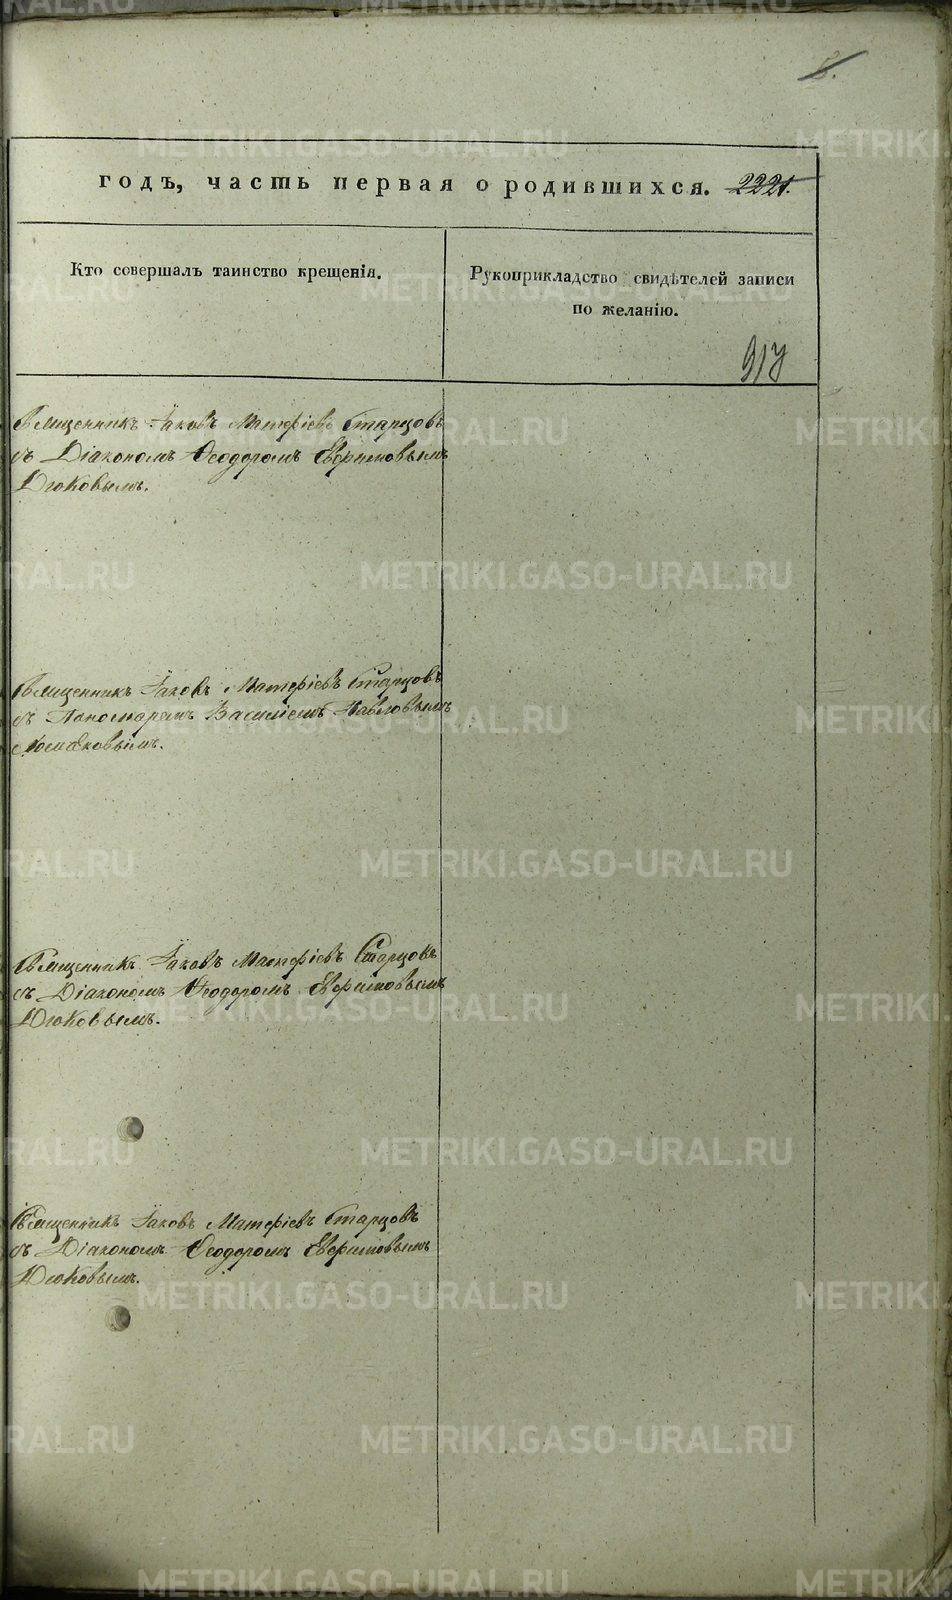 годъ, часть первая о родившихся. 2221.
Кто совершалъ таинство крещенія.
Рукоприкладство свидѣтелей записи
по желанію.
917
Священникъ Іаковъ Матѳіевъ Старцовъ
съ Діакономъ Ѳеодоромъ Евфимовымъ
Дюковымъ.
Священникъ Іаковъ Матѳіевъ Старцовъ
съ Пономаремъ Василіемъ Павловымъ
Священникъ Іаковъ Матѳіевъ Старцовъ
съ Діакономъ Ѳеодоромъ Евфимовымъ
Дюковымъ.
Священникъ Іаковъ Матѳіевъ Старцовъ
съ Діакономъ Ѳеодоромъ Евфимовымъ
Дюковымъ.
METRIKI.GASO-URAL.RU